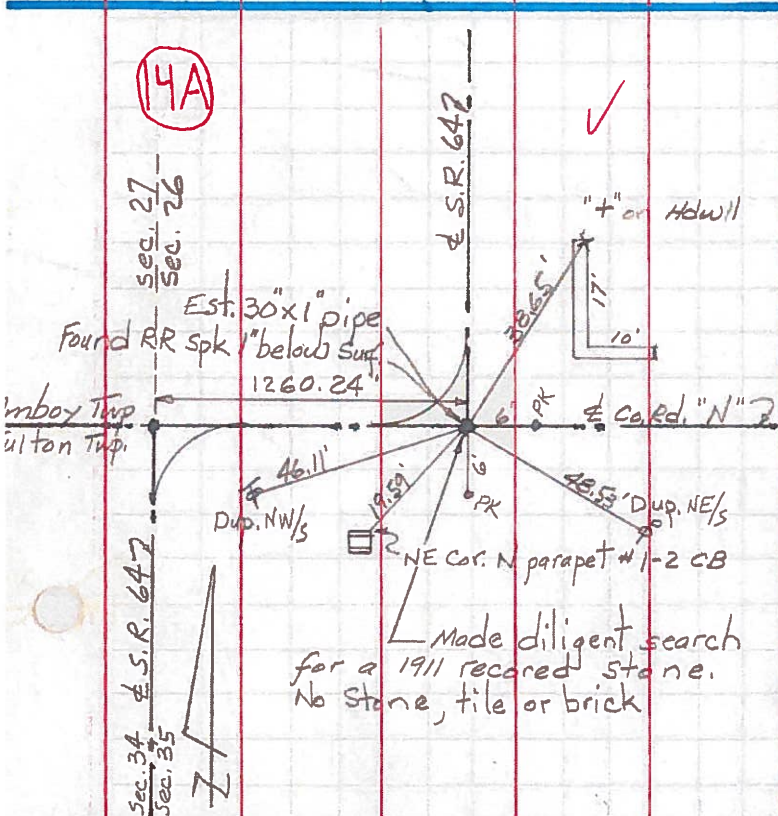 14A
Sec. 27
Sec. 26
℄ S.R. 647
"+" on Hdwll
38.65'
17'
10'
Est. 30"x1" pipe
Found RR Spk 1" below Surf.
1260.24'
mboy Twp
ulton Twp.
6'
PK
℄ Co. Rd. "N"
46.11'
19.59'
6'
PK
48.53'
Dup. NW/S
Dup. NE/S
NE Cor. N parapet #1-2 CB
Made diligent search
for a 1911 recored stone.
No Stone, tile or brick
℄ S.R. 647
Sec. 34
Sec. 35